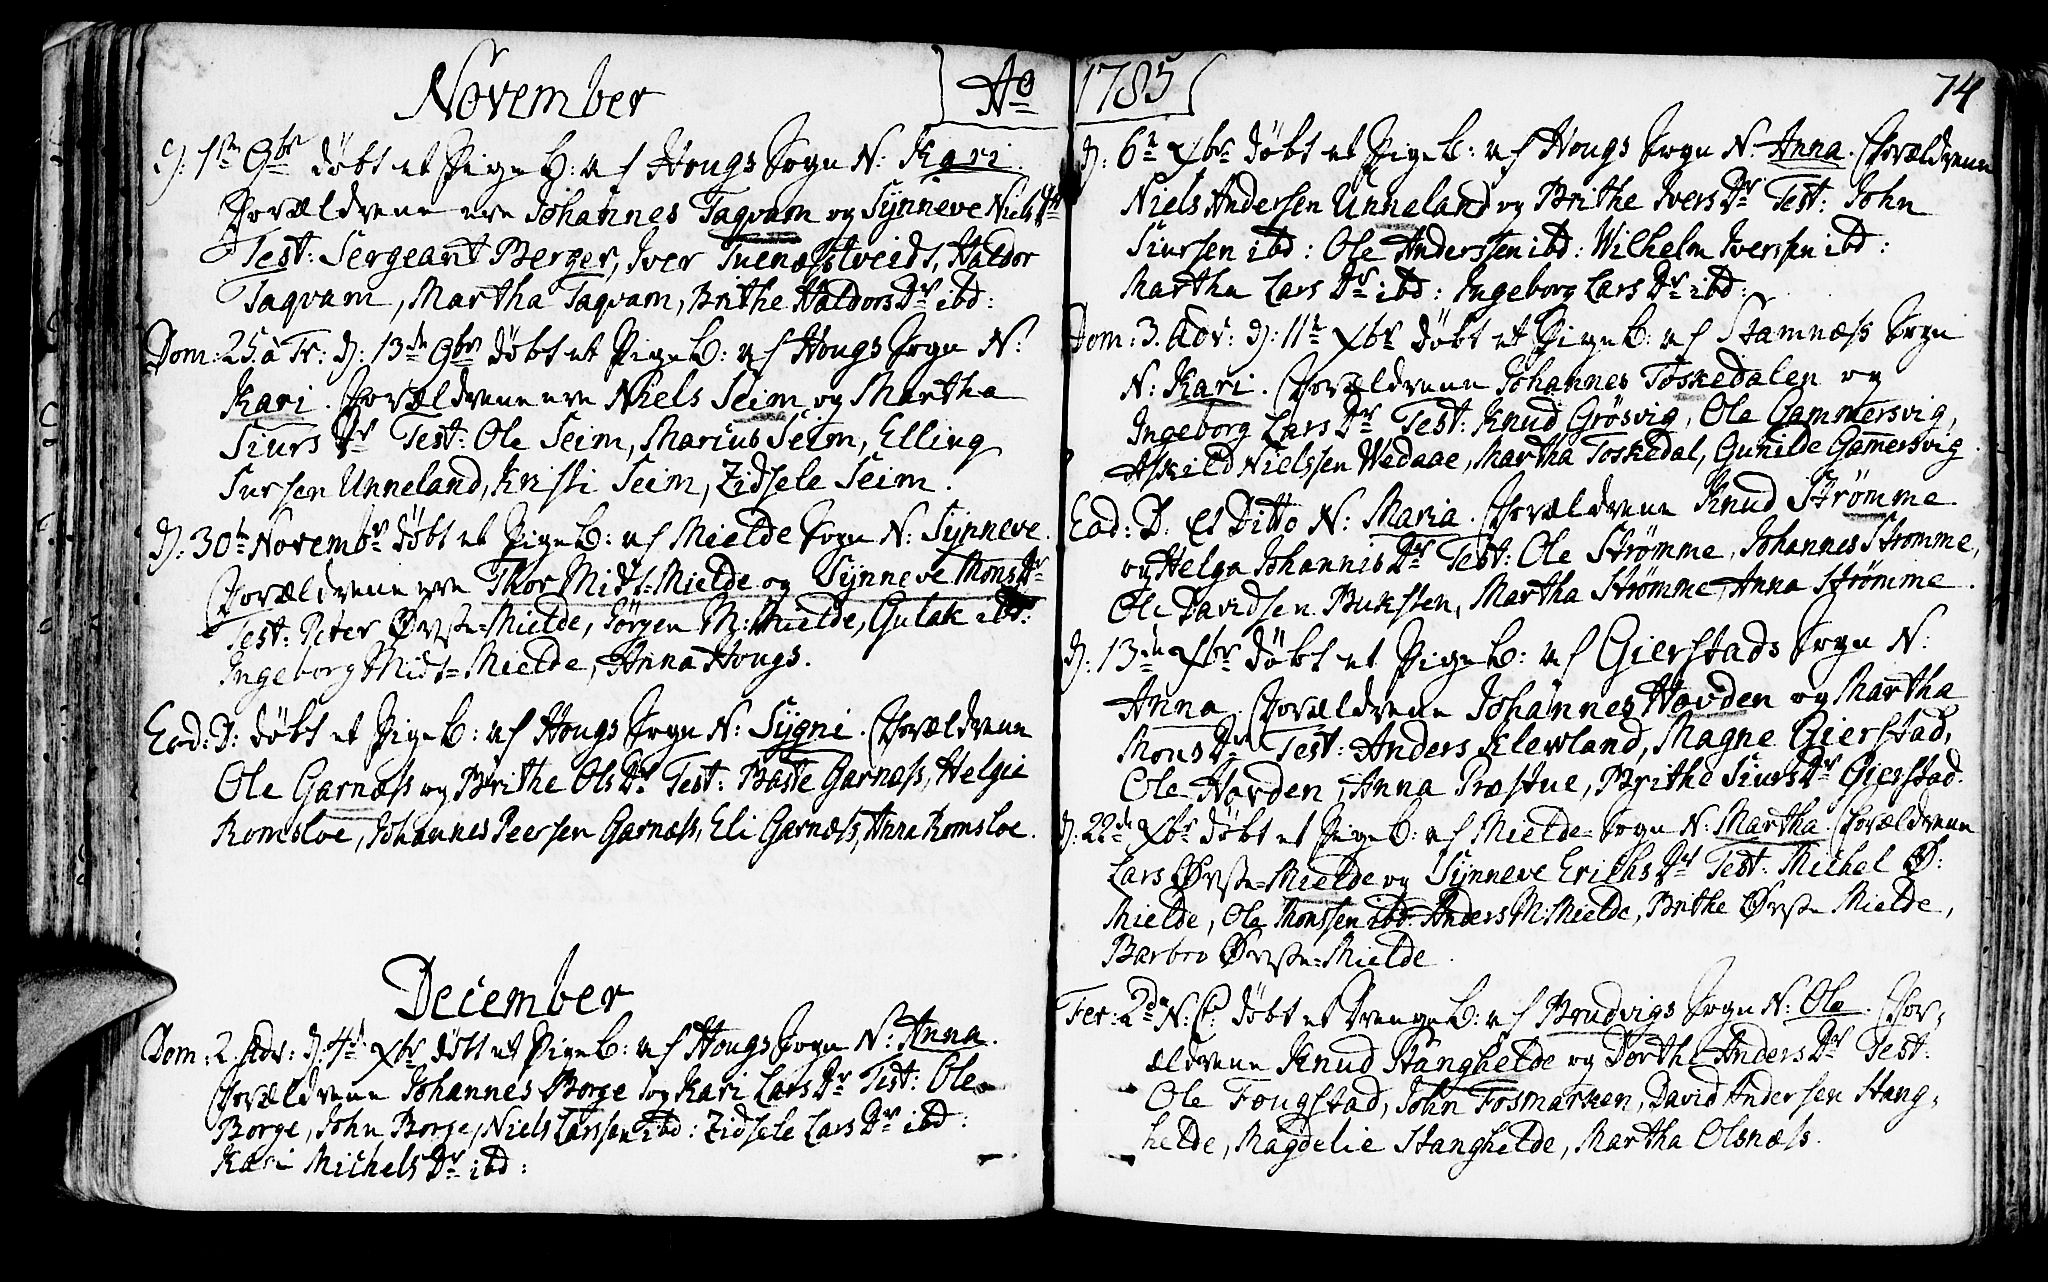 November
Ao
d: 1ste 9br døbt et Pige B: af Hougs Sogn N: Kari.
Forældrene ere Johannes Taqvam og Synneve Niels Dr
Test: Sergeant Berger, Iver Tuenæstveidt, Haldor
Taqvam, Martha Taqvam, Brithe Haldors Dr ibd:
Dom: 25 à Tr: d: 13de 9br døbt et Pige B: af Hougs Sogn N:
Kari. Forældrene ere Niels Seim og Martha
Siurs Dr Test: Ole Seim, Marius Seim, Elling
Sursen Unneland, Kristi Seim, Zidsele Seim.
d: 30te Novembr døbt et Pige B: af Mielde Sogn N: Synneve.
Forældrene ere Thor Midt=Mielde og Synneve Mons Dr
Test: Peter Øvste=Mielde, Jørgen M: Mielde, Gulak ibd:
Ingeborg Midt=Mielde, Anna Hougs.
Eod: D: døbt et Pige B: af Hougs Sogn N: Sygni. Forældrene
Ole Garnæss og Brithe Ols Dr Test: Baste Garnæss, Helgie
Romsloe, Johannes Peersen Garnæss, Eli Garnæss, Anna Romsloe.
December
Dom: 2. Adv: d: 4de Xbr døbt et Pige B: af Hougs Sogn N: Anna.
Forældrene Johannes Borge og Kari Lars Dr Test: Ole
Borge, John Borge, Niels Larssen ibd: Zidsele Lars Dr ibd:
Kari Michels Dr ibd:
1785
74
d: 6te Xbr døbt et Pige B: af Hougs Sogn N: Anna. Forældrene
Niels Andersen Unneland og Brithe Ivers Dr Test: John
Siursen ibd: Ole Anderssen ibd: Wilhelm Iverssen ibd:
Martha Lars Dr ibd: Ingeborg Lars Dr ibd:
Dom: 3. Adv: d: 11te Xbr døbt et Pige B: af Stamnæss Sogn
N: Kari. Forældrene Johannes Toskedalen og
Ingeborg Lars Dr Test: Knud Grøsvig, Ole Gammersvig,
Askild Nielssen Wadaae, Martha Toskedal, Gunilde Gamersvig.
Eod: D: et Ditto N: Maria. Forældrene Knud Strømme
og Helga Johannis Dr Test: Ole Strømme, Johannes Stromme,
Ole Davidsen Buksten, Martha Strømme, Anna Strømme.
d: 13de Xbr døbt et Pige B: af Gierstads Sogn N:
Anna. Forældrene Johannes Hovden og Martha
Mons Dr Test: Anders Klewland, Magne Gierstad,
Ole Hovden, Anna Præstue, Brithe Siurs Dr Gierstad.
d: 22de Xbr døbt et Pige B: af Mielde=Sogn N: Martha. Forældrene
Lars Øvste=Mielde og Synneve Erichs Dr Test: Michel Ø:
Mielde, Ole Monssen ibd: Anders M: Mielde, Brithe Øvste Mielde,
Barbro Øvste=Mielde.
Fer: 2de N: C: døbt et Drenge B: af Brudvigs Sogn N: Ole. For,
ældrene Knud Stanghelde og Dorthe Anders Dr Test:
Ole Fougstad, John Fosmarken, David Andersen Stang,
helde, Magdelie Stanghelde, Martha Olsnæss.